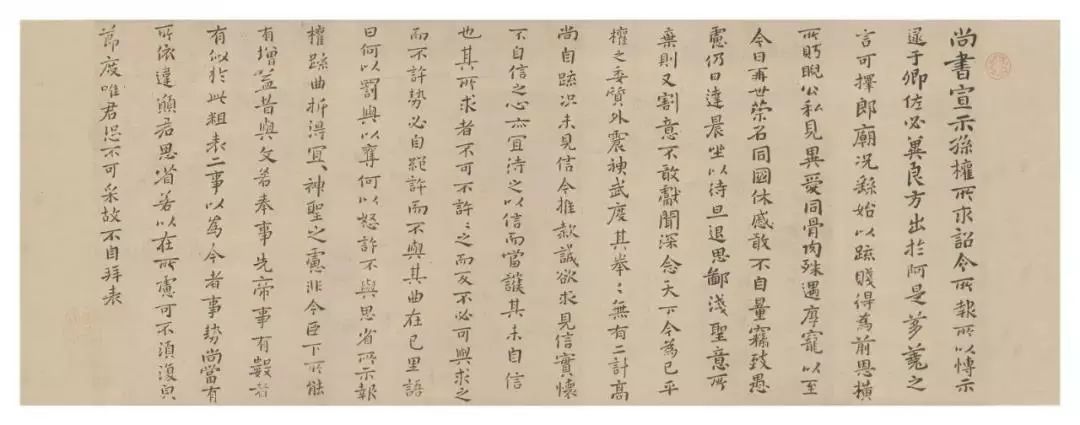 尚書宣示孫權所求詔令所報所以博示
逮于卿佐必冀良方出於阿是芻蕘之
言可擇郎廟況繇始以疏賤得為前恩橫
所眄睨公私見異愛同骨肉殊遇厚寵以至
今日再世榮名同國休慼敢不自量竊致愚
慮仍日達晨坐以待旦退思鄙淺聖意所
棄則又割意不敢獻聞深念天下今為已平
權之委質外震神武度其拳〻無有二計高
尚自疏況未見信今推款誠欲求見信實懷
不自信之心亦宜待之以信而當護其未自信
也其所求者不可不許〻之而反不必可與求之
而不許勢必自絕許而不與其曲在己里語
曰何以罰與以奪何以怒許不與思省所示報
權疏曲折得宜神聖之慮非今臣下所能
有增益昔與文若奉事先帝事有數者
有似於此粗表二事以為今者事勢尚當有
所依違願君思省若以在所慮可不須復皃
節度唯君恐不可采故不自拜表